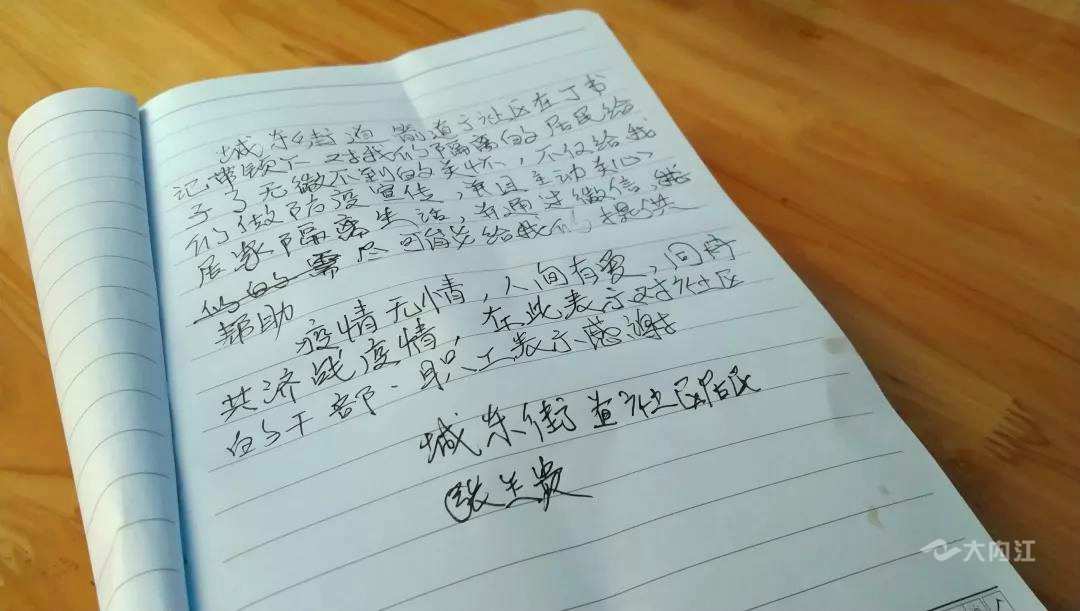 城东街道 道子社区在丁书
记带领下 对我们隔离的居民给
予了无微不到的关怀，不仅给我
们做防疫宣传，并且主动关心
居家隔离生活，并通过微信，
尽可能关给我们提供
帮助
疫情无情，人间有爱，同舟
共济战疫情，在此表示对社区
的干部·职工表示感谢
城东街道社区居民
张
大内江